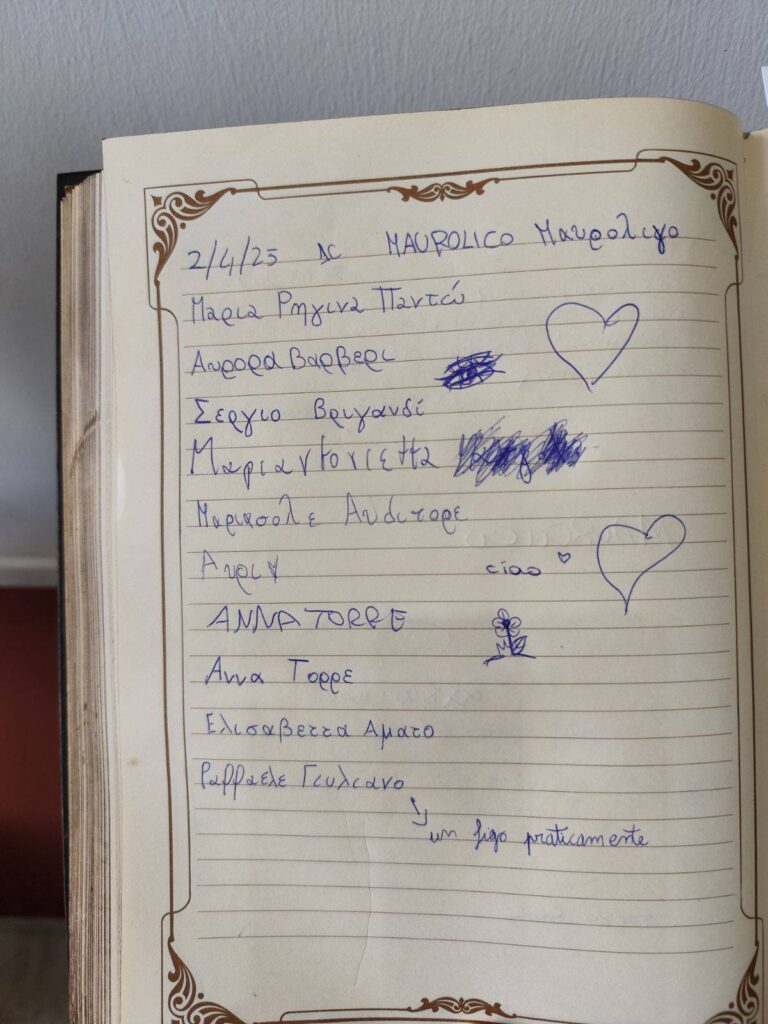 2/4/25 MAUROLICO Μαυρολιγο
Μαρια Ρηγινα Παντώ
Αυρορα Βαρβερι
Σεργιο Βριγανδί
Μαριαντονιεττα
Μαριασολε Αυδιτορε
ciao
ANNA TORRE
Αννα Τορρε
Ελισαβεττα Αματο
Ραφφαελε Γιυλιανο
un figo praticamente